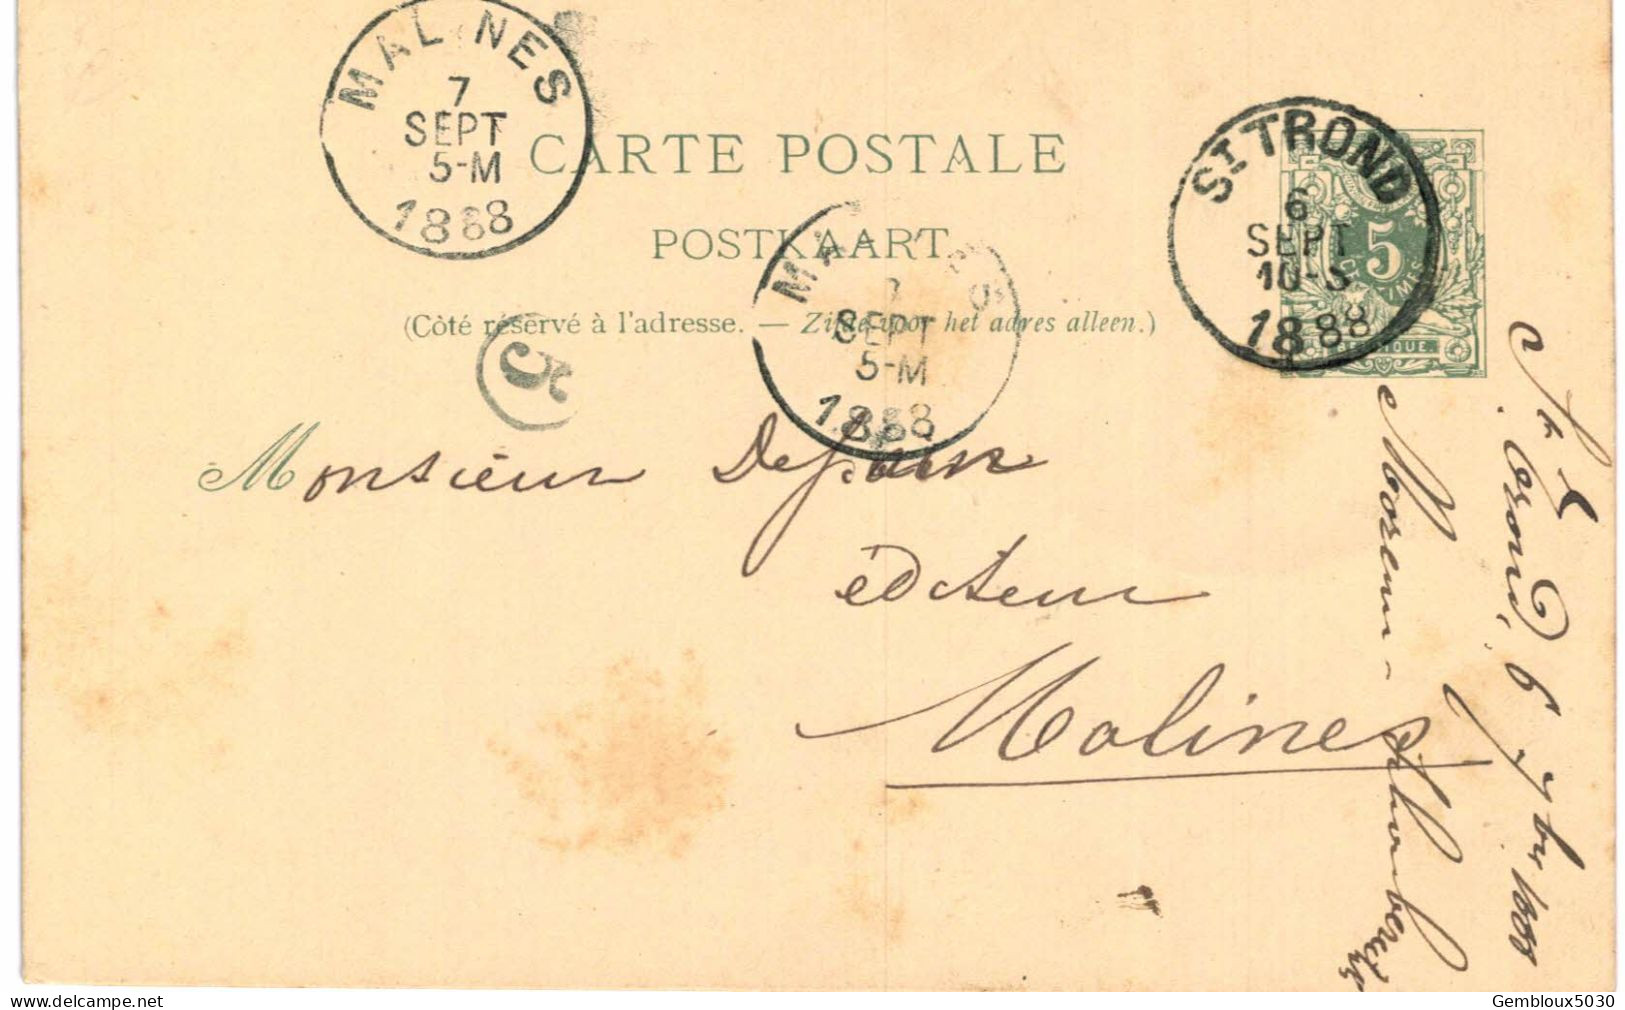 MALINES
7
SEPT
5-M
1888
CARTE POSTALE
POSTKAART.
(Côté réservé à l'adresse. — Zijde voor het adres alleen.)
ST TROND
6
SEPT
10-S
1888
5
CENTIMES
BELGIQUE.
MA ES
7
SEPT
5-M
1888
5
Monsieur
éditeur
Malines
St Trond, 6 7bre 1888
Gembloux5030